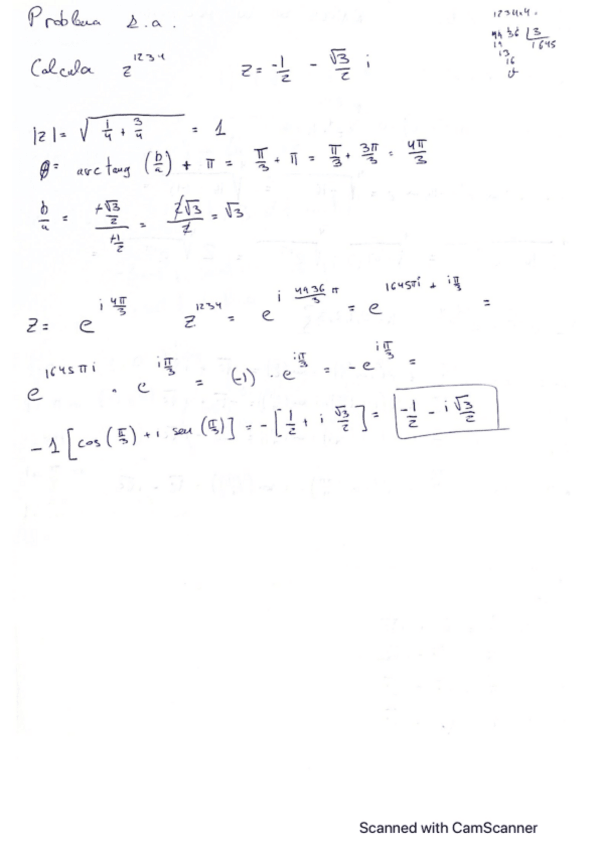 Problema 2.a.
1234·4.
4936 | 3
19 1645
13
16
1
Calcula z^1234 z = -1/2 - √3/2 i
|z| = √(1/4 + 3/4) = 1
θ = arctang (b/a) + π = π/3 + π = π/3 + 3π/3 = 4π/3
b/a = (+√3/2)/(+1/2) = 2√3/2 = √3
z = e^(i 4π/3) z^1234 = e^(i 4936/3 π) = e^(1645πi + iπ/3) =
e^(1645πi) · e^(iπ/3) = (-1) · e^(iπ/3) = -e^(iπ/3) =
-1 [cos(π/3) + i sen(π/3)] = -[1/2 + i √3/2] = -1/2 - i √3/2
Scanned with CamScanner